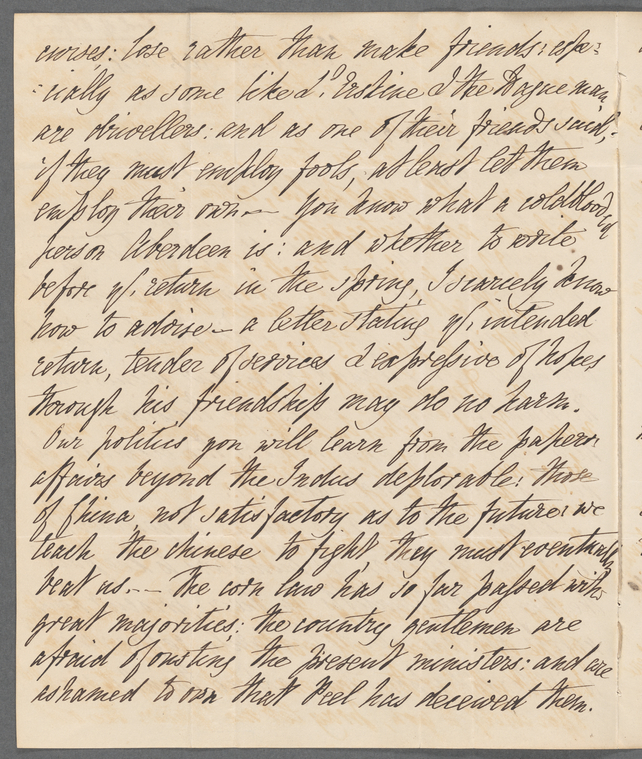 curses: lose rather than make friends: espe:
:cially as some like Ld. Erskine & the Hague man,
are drivellers: and as one of their friends said,
if they must employ fools, at least let them
employ their own — You know what a coldblooded
person Aberdeen is: and whether to write
before yr. return in the spring, I scarcely know
how to advise — a letter stating yr. intended
return, tender of services & expressive of hopes
through his friendship may do no harm.
Our politics you will learn from the papers:
affairs beyond the Indus deplorable: those
of China, not satisfactory as to the future: we
teach the chinese to fight, they must eventually
beat us. — The corn law has so far passed with
great majorities: the country gentlemen are
afraid of ousting the present ministers: and are
ashamed to own that Peel has deceived them.